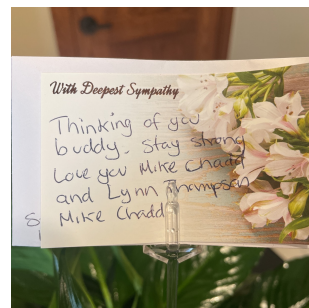 With Deepest Sympathy
Thinking of you
buddy. Stay strong
Love you Mike Chadd
and Lynn Thompson
Mike Chadd
S